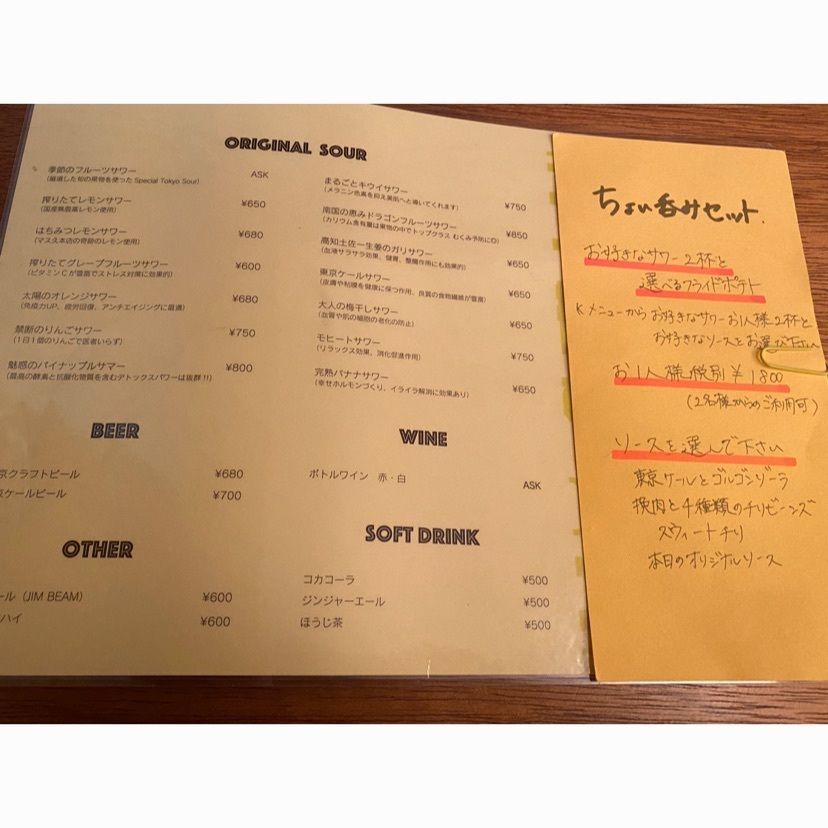 ORIGINAL SOUR
季節のフルーツサワー ASK
(厳選した旬の果物を使ったSpecial Tokyo Sour)
搾りたてレモンサワー ¥650
(国産無農薬レモン使用)
はちみつレモンサワー ¥680
(マヌ久本坊の奇跡のレモン使用)
搾りたてグレープフルーツサワー ¥600
(ビタミンCが豊富でストレス対策に効果的)
太陽のオレンジサワー ¥680
(免疫力UP、疲労回復、アンチエイジングに最適)
禁断のりんごサワー ¥750
(1日1個のりんごで医者いらず)
魅惑のパイナップルサマー ¥800
(最高の酵素と抗酸化物質を含むデトックスパワーは抜群!!)
まるごとキウイサワー ¥750
(メラニン色素を抑え美肌へと導いてくれます)
南国の恵みドラゴンフルーツサワー ¥850
(カリウム含有量は果物の中でトップクラス むくみ予防に◎)
高知土佐一生姜のガリサワー ¥650
(血液サラサラ効果、健胃、整腸作用にも効果的)
東京ケールサワー ¥650
(皮膚や粘膜を健康に保つ作用、良質の食物繊維が豊富)
大人の梅干しサワー ¥650
(血管や肌の細胞の老化の防止)
モヒートサワー ¥750
(リラックス効果、消化促進作用)
完熟バナナサワー ¥650
(幸せホルモンづくり、イライラ解消に効果あり)
BEER
京クラフトビール ¥680
京ケールビール ¥700
WINE
ボトルワイン 赤・白 ASK
OTHER
ール (JIM BEAM) ¥600
ハイ ¥600
SOFT DRINK
コカコーラ ¥500
ジンジャーエール ¥500
ほうじ茶 ¥500
ちょい呑みセット.
お好きなサワー2杯と
選べるフライドポテト
メニューからお好きなサワーお1人様2杯と
お好きなソースをお選び下さい
お1人様税別¥1800
(2名様からのご利用可)
ソースを選んで下さい
東京ケールとゴルゴンゾーラ
挽肉と4種類のチリビーンズ
スウィートチリ
本日のオリジナルソース